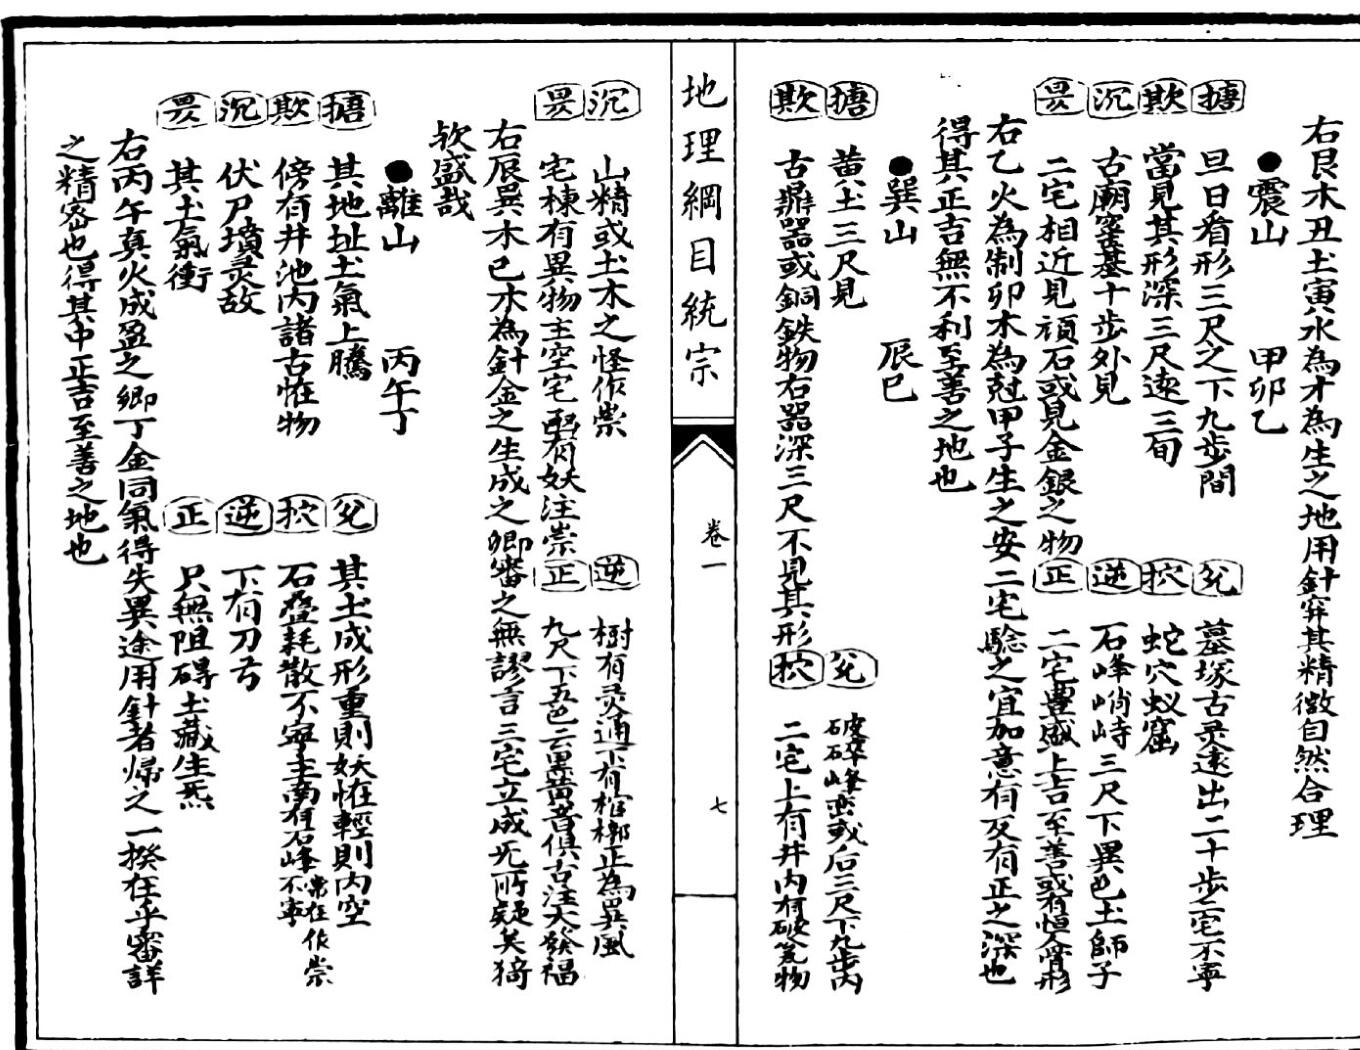 右艮木丑土寅水為才為生之地用針穽其精微自然合理
●震山 甲卯乙
搪 旦日看形三尺之下九步間
兊 墓塚古灵遠出二十步二宅不寧
欺 當見其形深三尺遠三旬
抭 蛇穴蚁窟
沉 古廟窰基十步外見
逆 石峰峭峙三尺下異色土師子
畏 二宅相近見頑石或見金銀之物
正 二宅豊盛上吉至善或有恒人骨形
右乙火為制卯木為尅甲子生之安二宅騐之宜加意有反有正之深也
得其正吉無不利至善之地也
●巽山 辰巳
搪 黄土三尺見
兊 破碎石峰巒或后三尺下九步内
欺 古鼎器或銅鉄物右器深三尺不見其形
抭 二宅上有井内有破瓮物
地理綱目統宗
卷一
七
沉 山精或土木之怪作祟
逆 樹有灵通下有棺槨正為巽風
畏 宅棟有異物主空宅配有妖注祟
正 九尺下五色云黒黄者俱古注大發福
右辰巽木巳木為針金之生成之卿審之無謬言三宅立成旡所疑矣猗
欤盛哉
●離山 丙午丁
搪 其地址土氣上騰
兊 其土成形重則妖恠輕則内空
欺 傍有井池内諸古恠物
抭 石叠耗散不寧主南有石峰不寧常在作祟
沉 伏尸墳灵故
逆 下有刀弓
畏 其土氣衝
正 只無阻碍土藏生炁
右丙午真火成盈之卿丁金同氣得失異途用針者帰之一揆在乎審詳
之精密也得其中正吉至善之地也